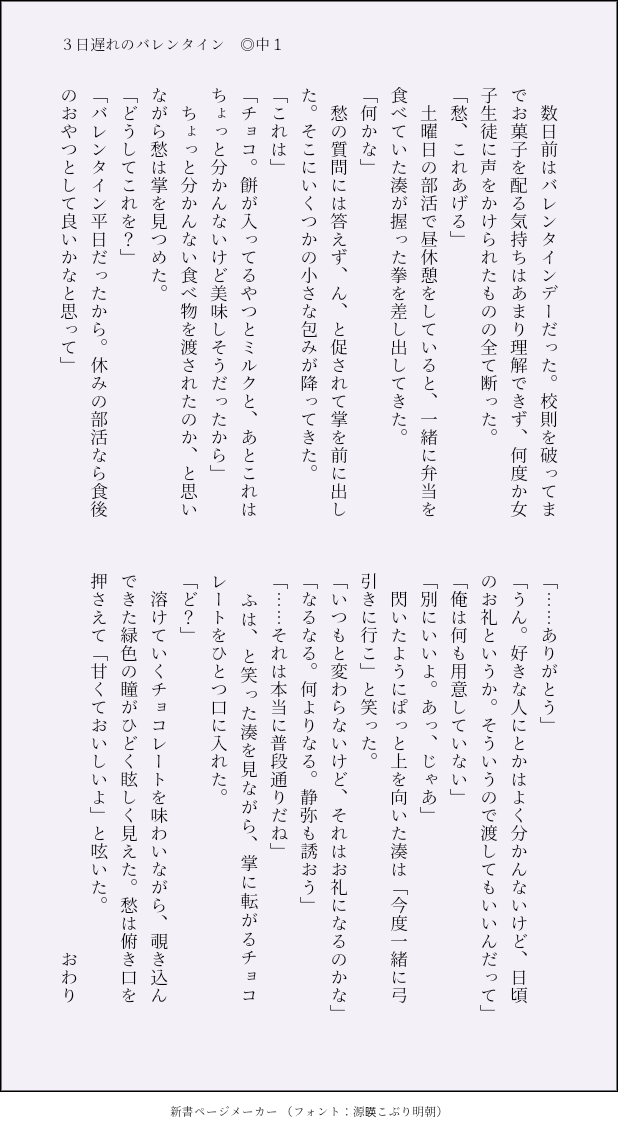 ３日遅れのバレンタイン　◎中１
　数日前はバレンタインデーだった。校則を破ってま
でお菓子を配る気持ちはあまり理解できず、何度か女
子生徒に声をかけられたものの全て断った。
「愁、これあげる」
　土曜日の部活で昼休憩をしていると、一緒に弁当を
食べていた湊が握った拳を差し出してきた。
「何かな」
　愁の質問には答えず、ん、と促されて掌を前に出し
た。そこにいくつかの小さな包みが降ってきた。
「これは」
「チョコ。餅が入ってるやつとミルクと、あとこれは
ちょっと分かんないけど美味しそうだったから」
　ちょっと分かんない食べ物を渡されたのか、と思い
ながら愁は掌を見つめた。
「どうしてこれを？」
「バレンタイン平日だったから。休みの部活なら食後
のおやつとして良いかなと思って」
「……ありがとう」
「うん。好きな人にとかはよく分かんないけど、日頃
のお礼というか。そういうので渡してもいいんだって」
「俺は何も用意していない」
「別にいいよ。あっ、じゃあ」
　閃いたようにぱっと上を向いた湊は「今度一緒に弓
引きに行こ」と笑った。
「いつもと変わらないけど、それはお礼になるのかな」
「なるなる。何よりなる。静弥も誘おう」
「……それは本当に普段通りだね」
　ふは、と笑った湊を見ながら、掌に転がるチョコ
レートをひとつ口に入れた。
「ど？」
　溶けていくチョコレートを味わいながら、覗き込ん
できた緑色の瞳がひどく眩しく見えた。愁は俯き口を
押さえて「甘くておいしいよ」と呟いた。
おわり
新書ページメーカー（フォント：源暎こぶり明朝）